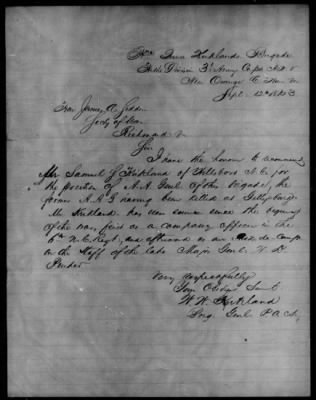 Hdqrs Kirklands Brigade
Heths Division 3d Army Corps
Near Orange C. House Va
Sept. 12th 1863
Hon James A. Seddon
Secty of War
Richmond Va
Sir
I have the honor to recommend
Mr Samuel S Kirkland of Hillsboro N.C. for
the position of A.A. Genl of this brigade, the
former A.A.G having been killed at Gettysburg.
Mr Kirkland has seen service since the beginning
of the war, first as a company officer in the
6th N.C. Regt, and afterward as an Aide-de-Camp
on the staff of the late Major Genl W. D.
Pender.
Very respectfully
Your Obdt Servt
W. W. Kirkland
Brig Genl P.A.C.S.